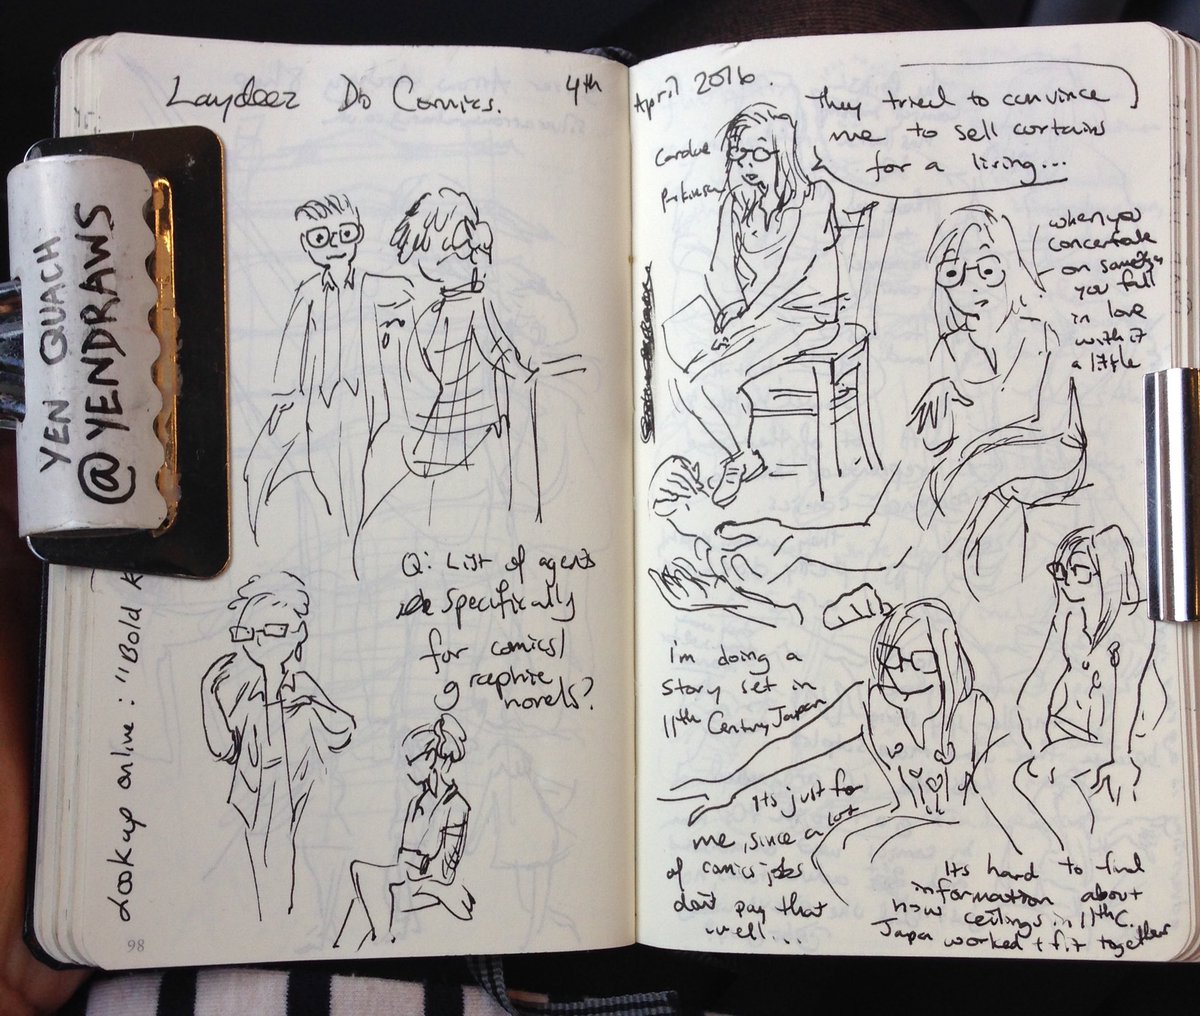 Laydeez Do Comics. 4th
April 2016
YEN QUACH
@YENDRAWS
Q: List of agents
specifically
for comics/
graphic
novels?
Look up online: "Bold
98
they tried to convince
me to sell curtains
for a living...
when you
concentrate
on
you fall
in love
with it
a little
I'm doing a
story set in
11th Century Japan
Its just for
me, since a lot
of comics jobs
don't pay that
well...
Its hard to find
information about
how ceilings in 11th C.
Japan worked + fit together